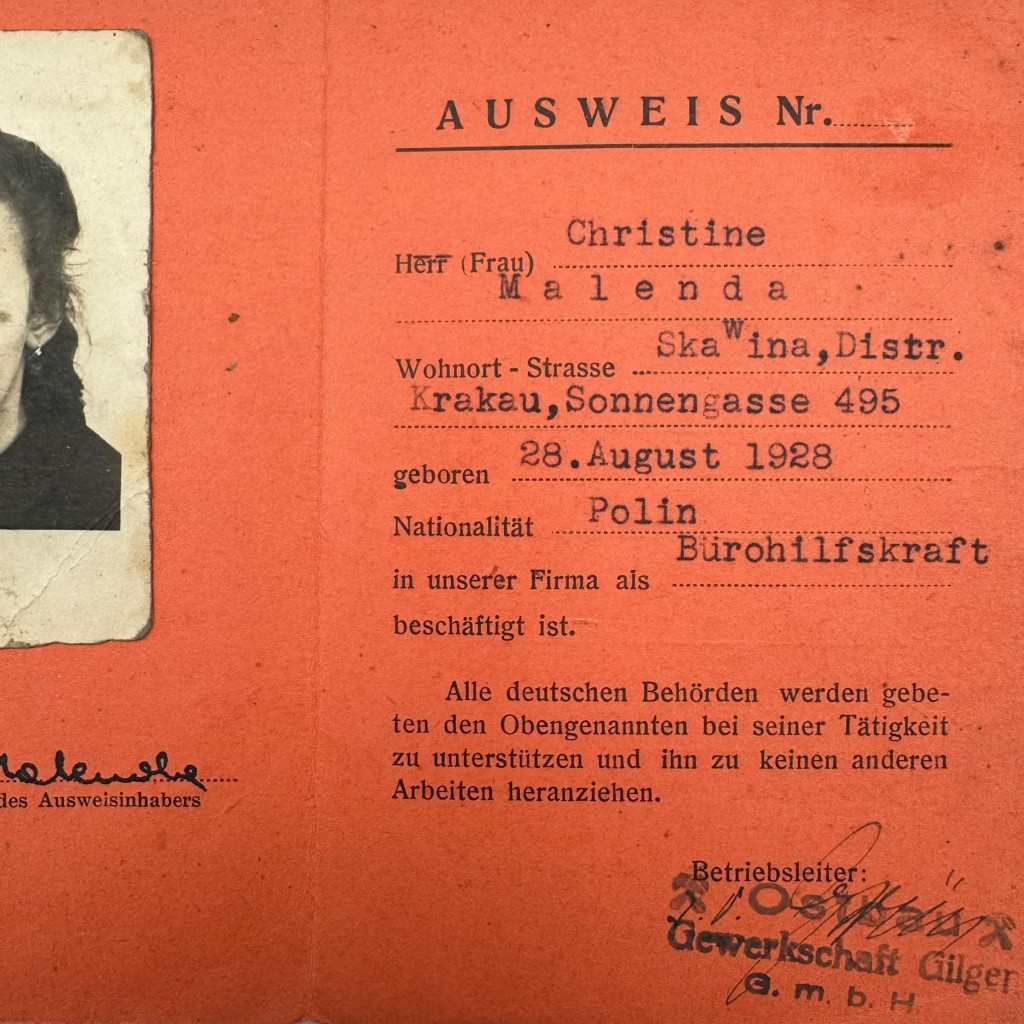 AUSWEIS Nr.
Christine
Herr (Frau)
Malenda
Skawina, Distr.
Wohnort - Strasse
Krakau, Sonnengasse 495
28. August 1928
geboren
Polin
Nationalität
Bürohilfskraft
in unserer Firma als
beschäftigt ist.
Alle deutschen Behörden werden gebe-
ten den Obengenannten bei seiner Tätigkeit
zu unterstützen und ihn zu keinen anderen
Arbeiten heranziehen.
des Ausweisinhabers
Betriebsleiter:
Ostbau
Gewerkschaft Gilgen
G. m. b. H